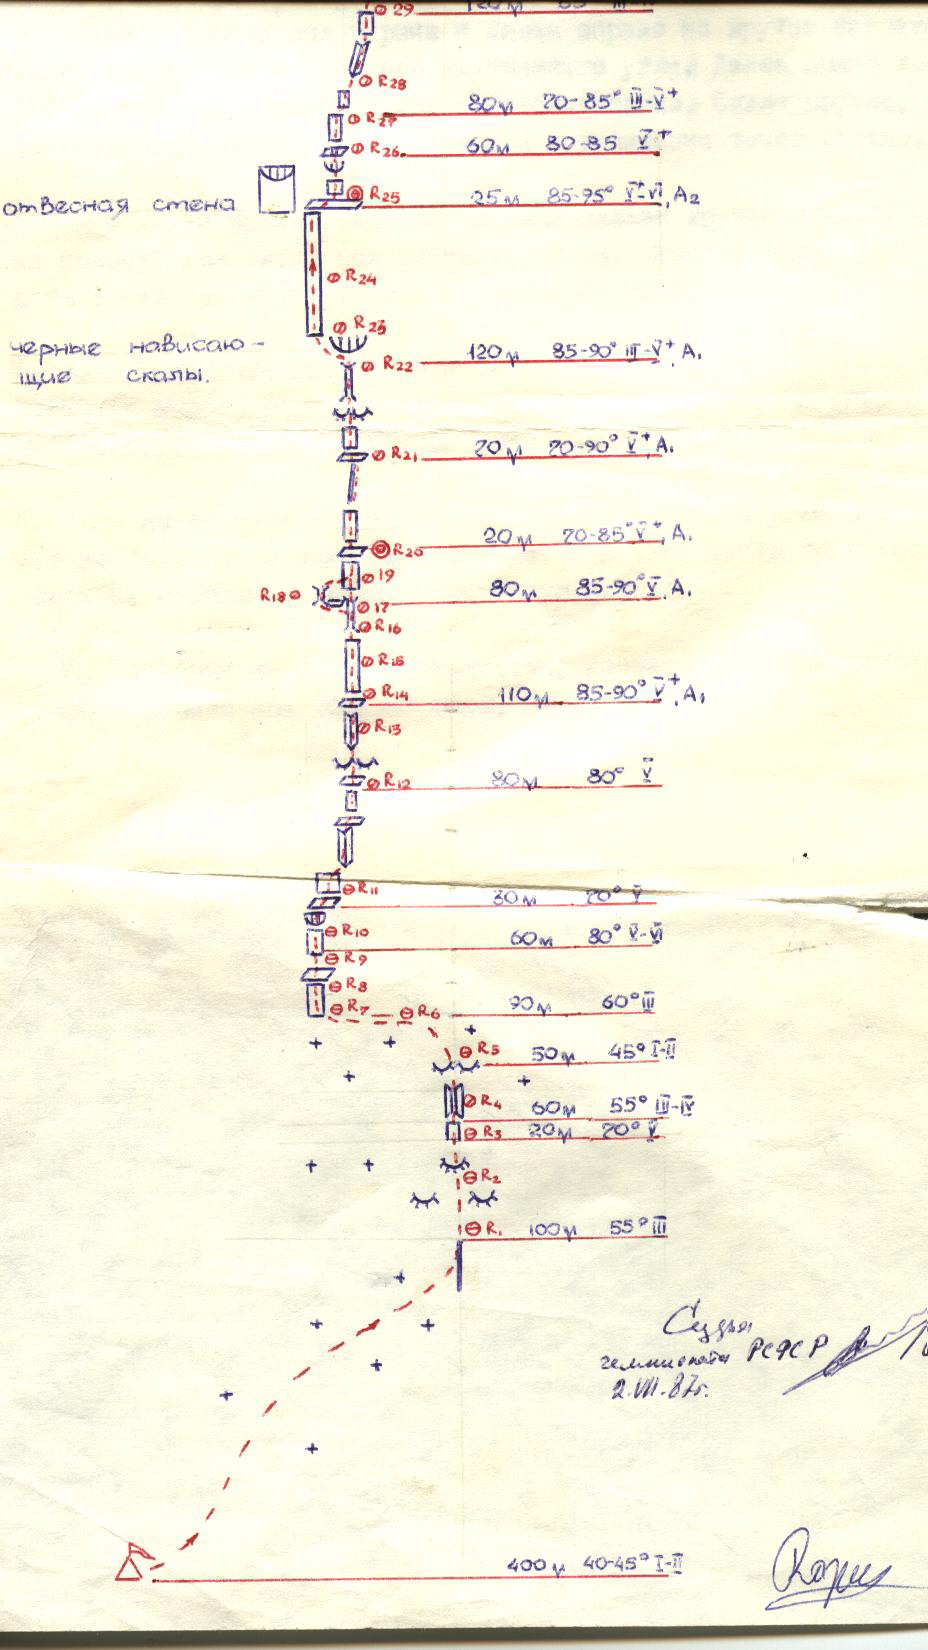 29 120м 85° III-V
R28
R27 80м 70-85° III-V+
R26 60м 80-85 V+
отвесная стена
R25 25м 85-95° V+-VI, A2
R24
R23
черные нависаю-
щие скалы.
R22 120м 85-90° III-V+ A1
R21 20м 70-90° V+, A1
R20 20м 70-85° V+, A1
19
R18
17 80м 85-90° V, A1
R16
R15
R14 110м 85-90° V+, A1
R13
R12 80м 80° V
R11 30м 70° V
R10 60м 80° V-VI
R9
R8
R7 R6 90м 60° III
R5 50м 45° I-II
R4 60м 55° III-IV
R3 20м 70° V
R2
R1 100м 55° III
Судья
чемпионата РСФСР
2.VII.87г.
400м 40-45° I-II